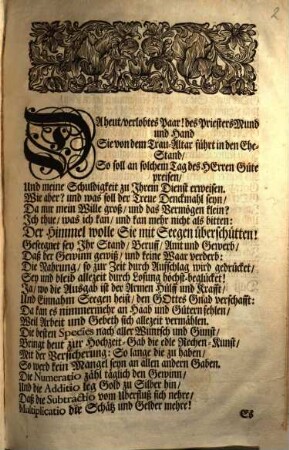 2
DA heut/verlobtes Paar! des Priesters Mund
und Hand
Sie von dem Trau-Altar führt in den Ehe-
Stand/
So soll an solchem Tag des HErren Güte
preisen/
Und meine Schuldigkeit zu Ihrem Dienst erweisen.
Wie aber? und was soll der Treue Denckmahl seyn/
Da mit mein Wille groß/ und das Vermögen klein?
Ich thue/ was ich kan/ und kan mehr nicht als bitten:
Der Himmel wolle Sie mit Seegen überschütten!
Gesegnet sey Ihr Stand/ Beruff/ Amt und Gewerb/
Daß der Gewinn gewiß/ und keine Waar verderb:
Die Nahrung/ so zur Zeit durch Auffschlag wird gedrücket/
Sey und bleib allezeit durch Losung höchst-beglücket!
Ja/ wo die Ausgab ist der Armen Hülff und Krafft/
Und Einnahm Seegen heist/ den GOttes Gnad verschafft:
Da kan es nimmermehr an Haab und Gütern fehlen/
Weil Arbeit und Gebeth sich allezeit vermählen.
Die besten Species nach aller Wunsch und Gunst/
Bringt heut zur Hochzeit-Gab die edle Rechen-Kunst/
Mit der Versicherung: So lange die zu haben/
So werd kein Mangel seyn an allen andern Gaben.
Die Numeratio zähl täglich den Gewinn/
Und die Additio leg Gold zu Silber hin/
Daß die Subtractio vom Uberfluß sich nehre/
Multiplicatio die Schätz und Gelder mehre!
Es